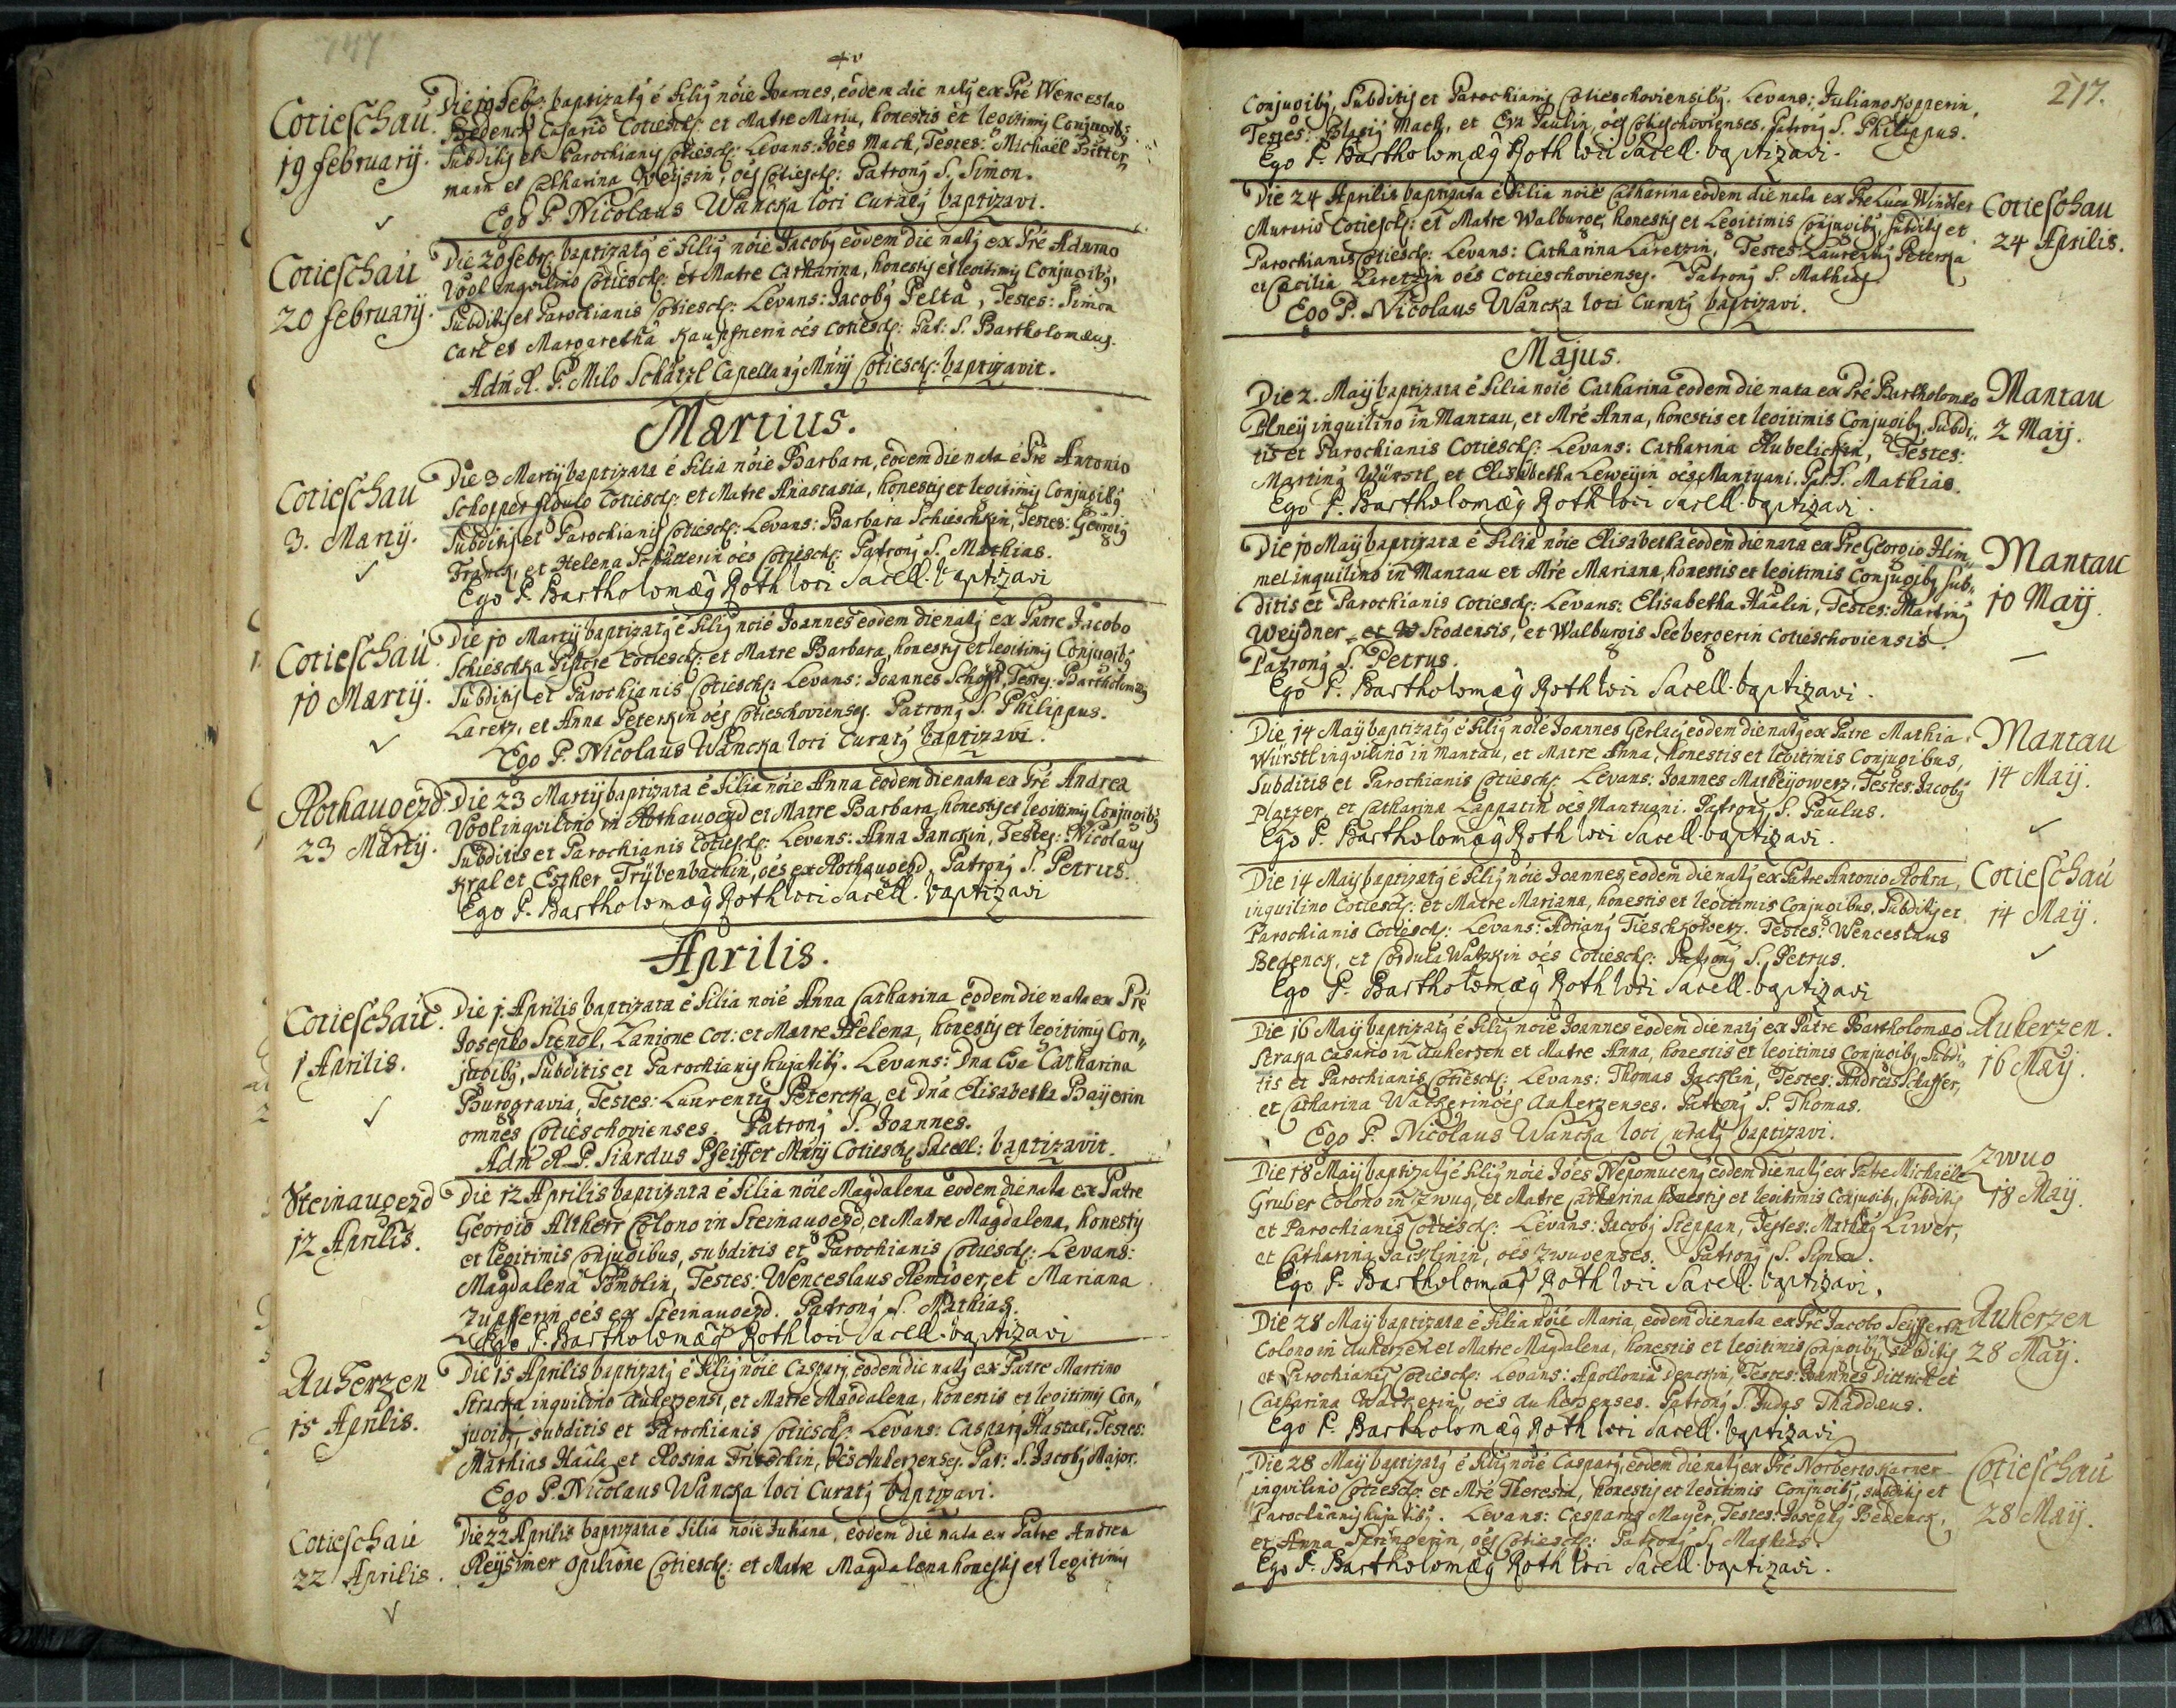 Cotieschau.
19 februarij.
Die 19 Feb: baptizatq é Filiq nõie Joannes, eodem die natq ex Pré Wenceslao
Bedenck Casario Cotiesch: et Matre Maria, honestis et legitimis Conjugibq,
Subditis et Parochianis Cotiesch: Levans: Joés Mach, Testes: Michaël Bitter-
mann et Catharina Weysin, oés Cotiesch: Patronq S. Simon.
Ego P. Nicolaus Wancka loci Curatq baptizavi.
Cotieschau
20 februarij.
Die 20 febr: baptizatq é Filiq nõie Jacobq eodem die natq ex Pré Adamo
Vogl inquilino Cotiesch: et Matre Catharina, honestis et legitimis Conjugibq,
Subditis et Parochianis Cotiesch: Levans: Jacobq Pelta, Testes: Simon
Carl et Margaretha Kauffnerin oés Cotiesch: Pat: S. Bartholomæus.
Adm R. P. Milo Schätzl Capellanq Mrij Cotiesch: baptizavit.
Martius.
Cotieschau
3. Martij.
Die 3 Martij baptizata é Filia nõie Barbara, eodem die nata é Pré Antonio
Schopper figulo Cotiesch: et Matre Anastasia, honestis et legitimis Conjugibq
Subditis et Parochianis Cotiesch: Levans: Barbara Schieschkin, Testes: Georgiq
Franck, et Helena Schüllerin oés Cotiesch: Patronq S. Mathias.
Ego P. Bartholomæq Roth loci Sacell. baptizavi
Cotieschau.
10 Martij.
Die 10 Martij baptizatq é Filiq nõie Joannes eodem die natq ex Patre Jacobo
Schieschka Pistore Cotiesch: et Matre Barbara, honestis et legitimis Conjugibq
Subditis et Parochianis Cotiesch: Levans: Joannes Schöpf, Testes: Bartholomæq
Laretz, et Anna Peterkin oés Cotieschovienses. Patronq S. Philippus.
Ego P. Nicolaus Wancka loci Curatq baptizavi.
Rothaugezd.
23 Martij.
Die 23 Martij baptizata é Filia nõie Anna eodem die nata ex Pré Andrea
Vogl inquilino in Rothaugezd et Matre Barbara, honestis et legitimis Conjugibq
Subditis et Parochianis Cotiesch: Levans: Anna Janckin, Testes: Nicolaus
Kral et Esther Trübenbachin, oés ex Rothaugezd, Patronq S. Petrus.
Ego P. Bartholomæq Roth loci Sacell. baptizavi
Aprilis.
Cotieschau.
1 Aprilis.
Die 1. Aprilis baptizata é Filia nõie Anna Catharina eodem die nata ex Pré
Josepho Stengl, Lanione Cot: et Matre Helena, honestis et legitimis Con„
jugibq, Subditis et Parochianis hujatibq. Levans: Dna Eva Catharina
Burggravia, Testes: Laurentiq Petercka, et Dná Elisabetha Bayerin
omnes Cotieschovienses. Patronq S. Joannes.
Adm R. P. Siardus Pfeiffer Mrij Cotiesch: Sacell: baptizavit.
Steinaugezd
12 Aprilis.
Die 12 Aprilis baptizata é Filia nõie Magdalena eodem die nata ex Patre
Georgio Altherr Colono in Steinaugezd, et Matre Magdalena, honestis
et legitimis Conjugibus, subditis et Parochianis Cotiesch: Levans:
Magdalena Pömblin, Testes: Wenceslaus Remiger, et Mariana
Zuafferin oés ex Steinaugezd. Patronq S. Mathias.
Ego P. Bartholomæq Roth loci Sacell. baptizavi
Auherzen
15 Aprilis.
Die 15 Aprilis baptizatq é Filiq nõie Casparq eodem die natq ex Patre Martino
Stracka inquilino Auherzensi, et Matre Magdalena, honestis et legitimis Con„
jugibq, subditis et Parochianis Cotiesch: Levans: Casparq Hastal, Testes:
Mathias Haala et Rosina Fritschin, oés Auherzenses. Pat: S. Jacobq Major.
Ego P. Nicolaus Wancka loci Curatq baptizavi.
Cotieschau
22 Aprilis.
Die 22 Aprilis baptizata é Filia nõie Juliana, eodem die nata ex Patre Andrea
Reysimer Opilione Cotiesch: et Matre Magdalena honestis et legitimis
217.
Conjugibq, Subditis et Parochianis Cotieschoviensibq. Levans: Juliana Kopperin,
Testes: Blasiq Mach, et Eva Paulin, oés Cotieschovienses, Patronq S. Philippus.
Ego P. Bartholomæq Roth loci Sacell. baptizavi.
Cotieschau
24 Aprilis.
Die 24 Aprilis baptizata é Filia nõie Catharina eodem die nata ex Pré Luca Windler
Murario Cotiesch: et Matre Walburge, honestis et Legitimis Cõjugibq, subditis et
Parochianis Cotiesch: Levans: Catharina Laretzin, Testes Laurentiq Peterka
et Cæcilia Laretzin oés Cotieschovienses. Patronq S. Mathias.
Ego P. Nicolaus Wancka loci Curatq baptizavi.
Majus.
Mantau
2 Maij.
Die 2. Maij baptizata é Filia nõie Catharina eodem die nata ex Pré Bartholomæo
Polney inquilino in Mantau, et Mré Anna, honestis et legitimis Conjugibq, Subdi„
tis et Parochianis Cotiesch: Levans: Catharina Kubelickin, Testes:
Martinq Würstl et Elisabetha Leweyin oés Mantuani. Pat. S. Mathias.
Ego P. Bartholomæq Roth loci Sacell. baptizavi.
Mantau
10 Maij.
Die 10 Maij baptizata é Filia nõie Elisabetha eodem die nata ex Pre Georgio Him„
mel inquilino in Mantau et Mré Mariana, honestis et legitimis Conjugibq, sub„
ditis et Parochianis Cotiesch: Levans: Elisabetha Häalin, Testes: Martinq
Weijdner Stodensis, et Walburgis Seebergerin Cotieschoviensis.
Patronq S. Petrus.
Ego P. Bartholomæq Roth loci Sacell. baptizavi.
Mantau
14 Maij.
Die 14 Maij baptizatq é Filiq nõie Joannes Gerlacq eodem die natq ex Patre Mathia
Würstl inquilino in Mantau, et Matre Anna, honestis et legitimis Conjugibus,
Subditis et Parochianis Cotiesch: Levans: Joannes Matheyowetz, Testes: Jacobq
Platzer, et Catharina Lappatin oés Mantuani. Patronq S. Paulus.
Ego P. Bartholomæq Roth loci Sacell. baptizavi.
Cotieschau
14 Maij.
Die 14 Maij baptizatq é Filiq nõie Joannes, eodem die natq ex Patre Antonio Rohra,
inquilino Cotiesch: et Matre Mariana, honestis et legitimis Conjugibus, Subditis et
Parochianis Cotiesch: Levans: Adrianq Tieschkowetz. Testes: Wenceslaus
Bedenck, et Cordula Watzkin oés Cotiesch: Patronq S. Petrus.
Ego P. Bartholomæq Roth loci Sacell. baptizavi
Auherzen.
16 Maij.
Die 16 Maij baptizatq é Filiq nõie Joannes eodem die natq ex Patre Bartholomæo
Straka Casario in Auherzen et Matre Anna, honestis et legitimis Conjugibq, Subdi„
tis et Parochianis Cotiesch: Levans: Thomas Jacklin, Testes: Andreas Schaffer,
et Catharina Wackerin oés Auherzenses. Patronq S. Thomas.
Ego P. Nicolaus Wancka loci Curatq baptizavi.
Zwug
18 Maij.
Die 18 Maij baptizatq é Filiq nõie Joés Nepomucenq eodem die natq ex Patre Michaële
Gruber Colono in Zwug, et Matre Catharina honestis et legitimis Conjugibq, subditis
et Parochianis Cotiesch: Levans: Jacobq Steppan, Testes: Mathias Liwer,
et Catharina Jacklinin, oés Zwugenses. Patronq S. Simon.
Ego P. Bartholomæq Roth loci Sacell. baptizavi.
Auherzen
28 Maij.
Die 28 Maij baptizata é Filia nõie Maria, eodem die nata ex Pré Jacobo Seyfferth
Colono in Auherzen et Matre Magdalena, honestis et legitimis Conjugibq, subditis
et Parochianis Cotiesch: Levans: Apollonia Denckin, Testes: Joannes Dittrich et
Catharina Wackerin, oés Auherzenses. Patronq S. Judas Thaddæus.
Ego P. Bartholomæq Roth loci Sacell. baptizavi
Cotieschau
28 Maij.
Die 28 Maij baptizatq é Filiq nõie Casparq, eodem die natq ex Pré Norberto Karner
inquilino Cotiesch: et Mré Theresia, honestis et legitimis Conjugibq, subditis et
Parochianis hujatibq. Levans: Casparq Mayer, Testes: Josephq Bedenck,
et Anna Springerin, oés Cotiesch: Patronq S. Mathias.
Ego P. Bartholomæq Roth loci Sacell. baptizavi.